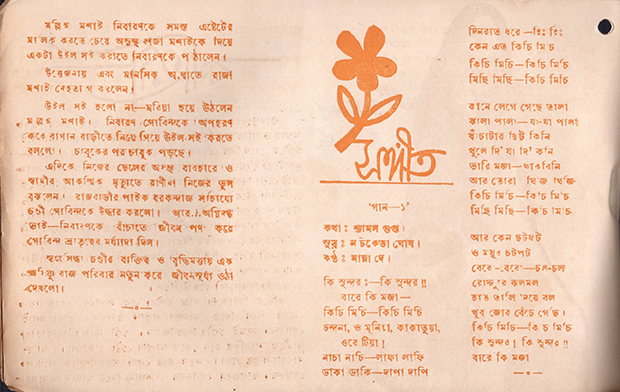 মল্লিক মশাই নিবারণকে সমস্ত এষ্টেটের
মালিক করতে চেয়ে অসুস্থ রাজা মশাইকে দিয়ে
একটা উইল সই করাতে নিবারণকে পাঠালেন।
উত্তেজনায় এবং মানসিক আঘাতে রাজা
মশাই দেহত্যাগ করলেন।
উইল সই হলো না—মরিয়া হয়ে উঠলেন
মল্লিক মশাই। নিবারণ গোবিন্দকে অপহরণ
করে বাগান বাড়ীতে নিয়ে গিয়ে উইল-সই করতে
বললো। চাবুকের পর চাবুক পড়ছে।
এদিকে নিজের ছেলের অসৎ ব্যবহারে ও
স্বামীর আকস্মিক মৃত্যুতে রাণীমা নিজের ভুল
বুঝলেন। রাজবাড়ীর পাইক বরকন্দাজ সাহায্যে
চণ্ডী গোবিন্দকে উদ্ধার করলো। আর..।
ভাই—নিবারণকে বাঁচাতে জীবন পণ করে
গোবিন্দ ভ্রাতৃত্বের মর্য্যাদা দিল।
চণ্ডীর ব্যক্তিত্ব ও বুদ্ধিমত্তায় এক
রাজ পরিবার নতুন করে জীবনসূর্য্য ওঠা
দেখলো।
সঙ্গীত
'গান—১'
কথা : শ্যামল গুপ্ত।
সুর : নচিকেতা ঘোষ।
কণ্ঠ : মান্না দে।
কি সুন্দর :—কি সুন্দর !!
বারে কি মজা—
কিচি মিচি—কিচি মিচি
চন্দনা, ও মুনিয়া, কাকাতুয়া,
ওরে টিয়া !
নাচা নাচি—লাফা লাফি
ডাকা ডাকি—দাপা দাপি
দিনরাত ধরে—হিঃ হিঃ
কেন এত কিচি মিচি
কিচি মিচি—কিচি মিচি
মিছি মিছি—কিচি মিচি
কানে লেগে গেছে তালা
ঝালা পালা—যা-যা পালা
খাঁচাটার ছিট কিনি
খুলে দি' যা দি' কনি
ভারি মজা—থাকবিনি
আর তোরা
কিচি মিচি—কিচি মিচি
মিছি মিছি—কিচি মিচি
আর কেন ছটফট
ও ময়ূর চটপট
বেরে—বেরে—চল-চল
রোদ্দুরে ঝলমল
খুব জোর বেঁচে গেছি।
কিচি মিচি—কিচি মিচি
কি সুন্দর ! কি সুন্দর !!
বারে কি মজা